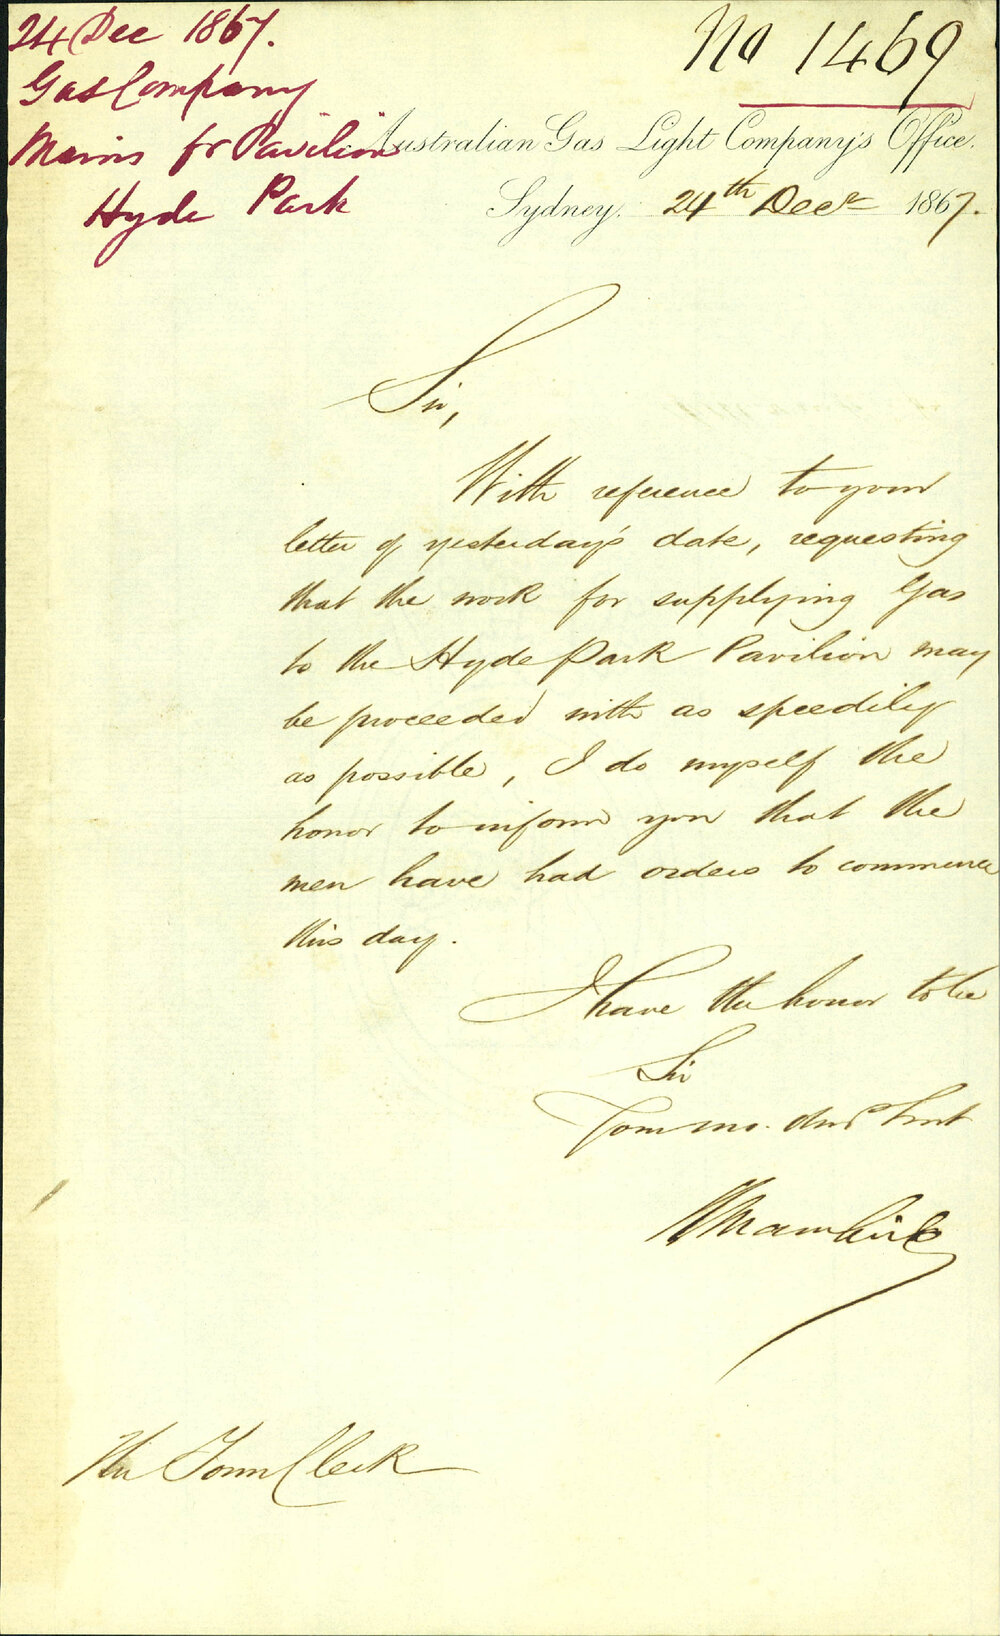 24 Dec 1867.
Gas Company
Mains for Pavilion
Hyde Park
No 1469
Australian Gas Light Company's Office.
Sydney. 24th Decr 1867.
Sir,
With reference to your
letter of yesterday's date, requesting
that the work for supplying Gas
to the Hyde Park Pavilion may
be proceeded with as speedily
as possible, I do myself the
honor to inform you that the
men have had orders to commence
this day.
I have the honor to be
Sir
Your mo. obdt Servt
The Town Clerk